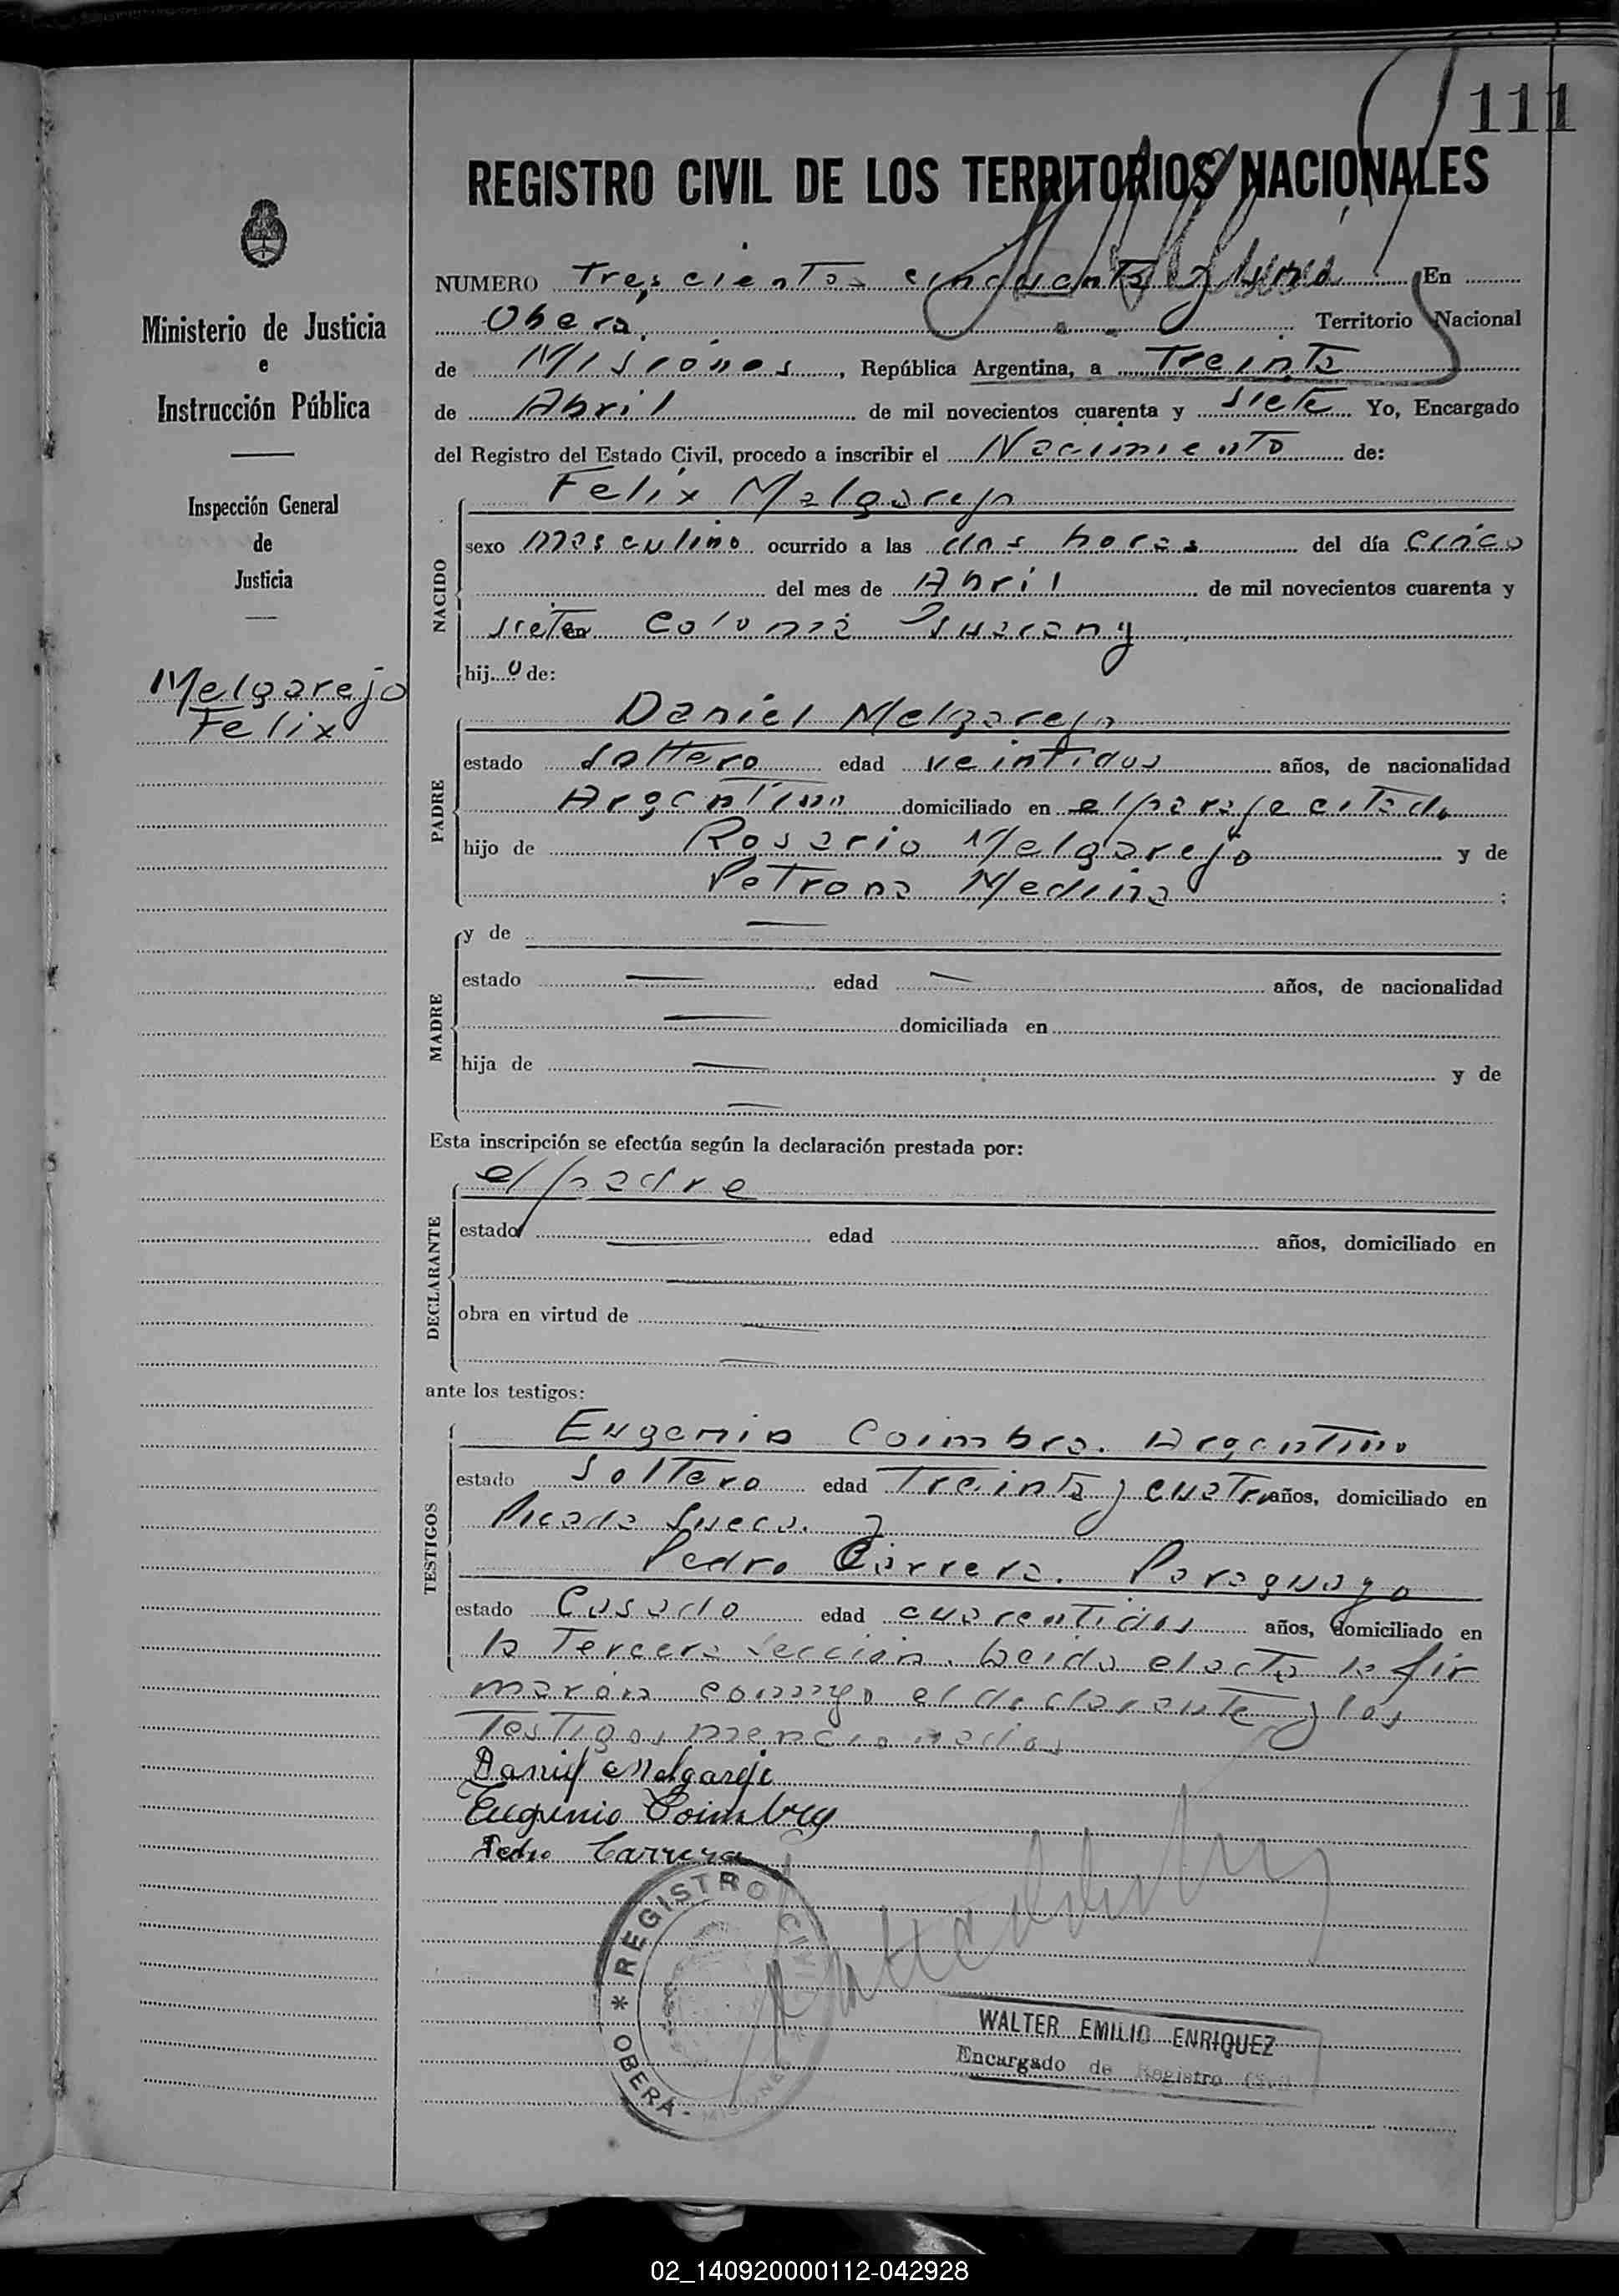 111
REGISTRO CIVIL DE LOS TERRITORIOS NACIONALES
NUMERO Trescientos cincuenta y uno En
Oberá Territorio Nacional
de Misiones, República Argentina, a Treinta
de Abril de mil novecientos cuarenta y siete Yo, Encargado
del Registro del Estado Civil, procedo a inscribir el Nacimiento de:
Ministerio de Justicia
e
Instrucción Pública
Inspección General
de
Justicia
Melgarejo
Felix
NACIDO
Felix Melgarejo
sexo masculino ocurrido a las dos horas del día cinco
del mes de Abril de mil novecientos cuarenta y
siete en Colonia Guarany
hijo de:
PADRE
Daniel Melgarejo
estado soltero edad veintidos años, de nacionalidad
Argentino domiciliado en el paraje citado
hijo de Rosario Melgarejo y de
Petrona Medina ;
MADRE
y de —
estado — edad — años, de nacionalidad
— domiciliada en
hija de — y de
—
Esta inscripción se efectúa según la declaración prestada por:
DECLARANTE
el padre
estado — edad años, domiciliado en
—
obra en virtud de —
—
ante los testigos:
TESTIGOS
Eugenio Coimbra. Argentino
estado Soltero edad Treinta y cuatro años, domiciliado en
Picada Sueca. y
Pedro Carrera. Paraguayo
estado Casado edad cuarentidos años, domiciliado en
la Tercera Sección. Leida el acta la fir
maron conmigo el declarante y los
Testigos mencionados
Daniel Melgarejo
Eugenio Coimbra
Pedro Carrera
* REGISTRO CIVIL
OBERÁ - MISIONES
WALTER EMILIO ENRIQUEZ
Encargado de Registro Civil
02_140920000112-042928